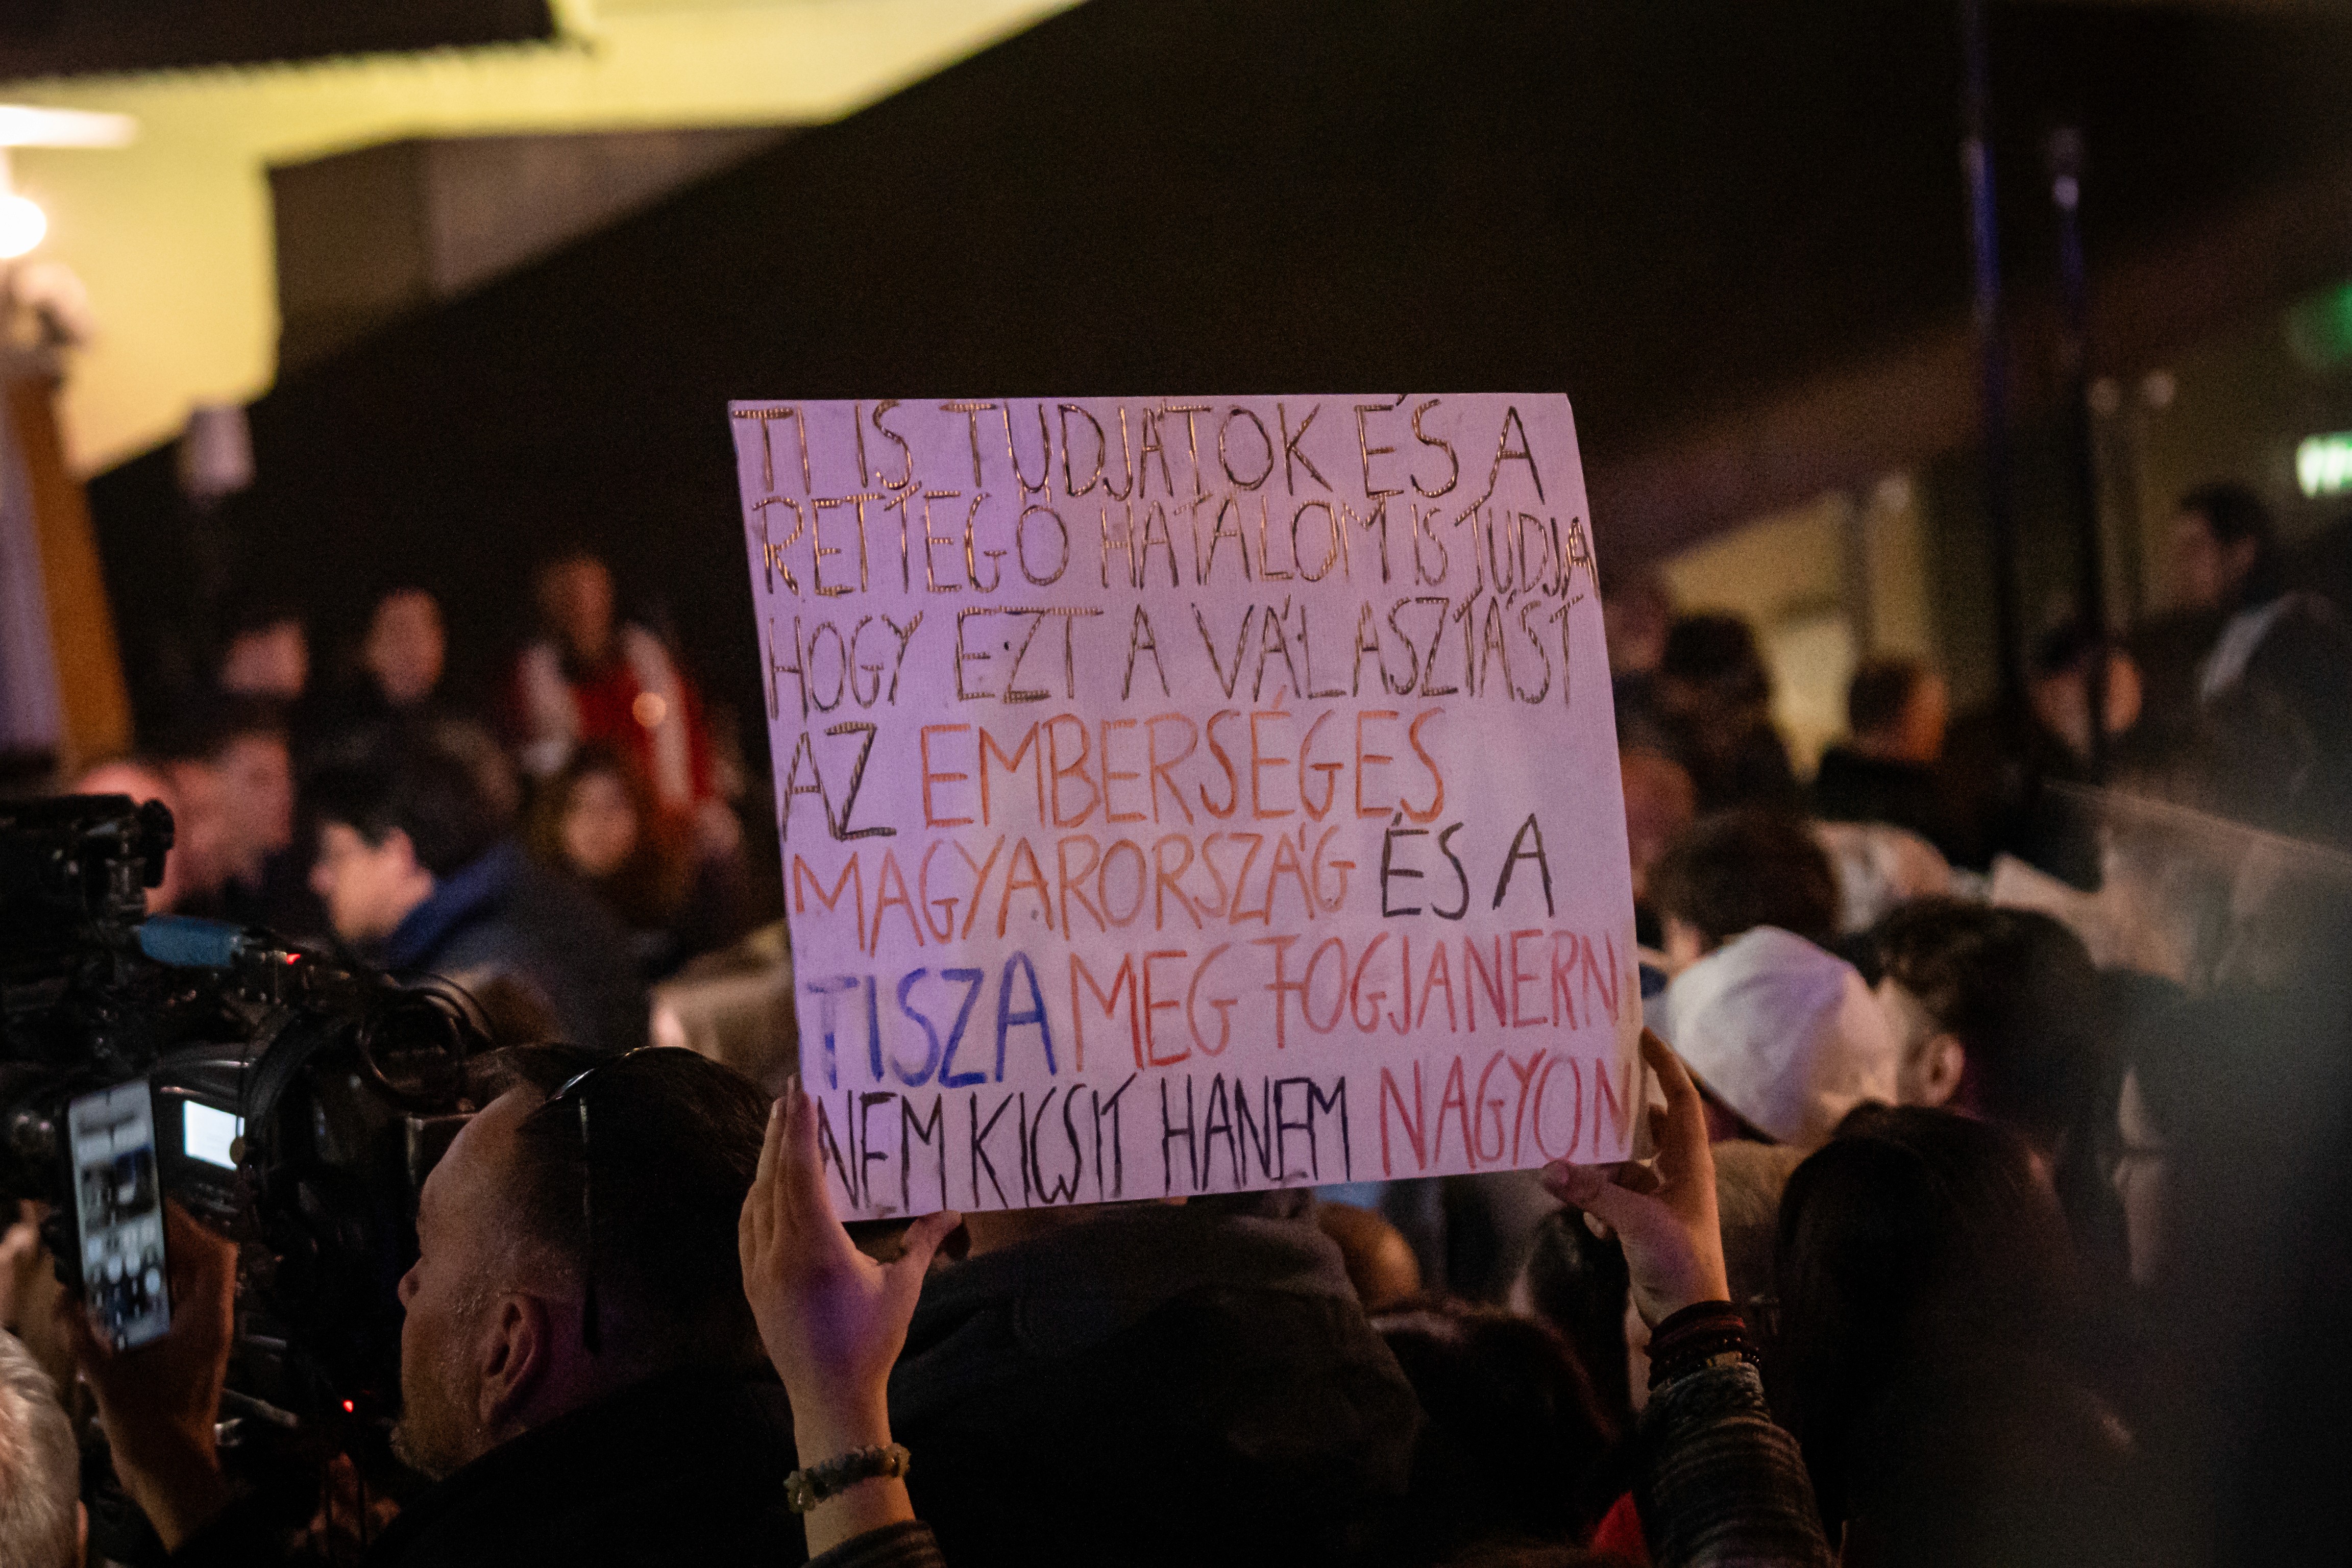 TI IS TUDJÁTOK ÉS A
RETTEGŐ HATALOM IS TUDJA
HOGY EZT A VÁLASZTÁST
AZ EMBERSÉGES
MAGYARORSZÁG ÉS A
TISZA MEG FOGJA NERN
NEM KICSIT HANEM NAGYON